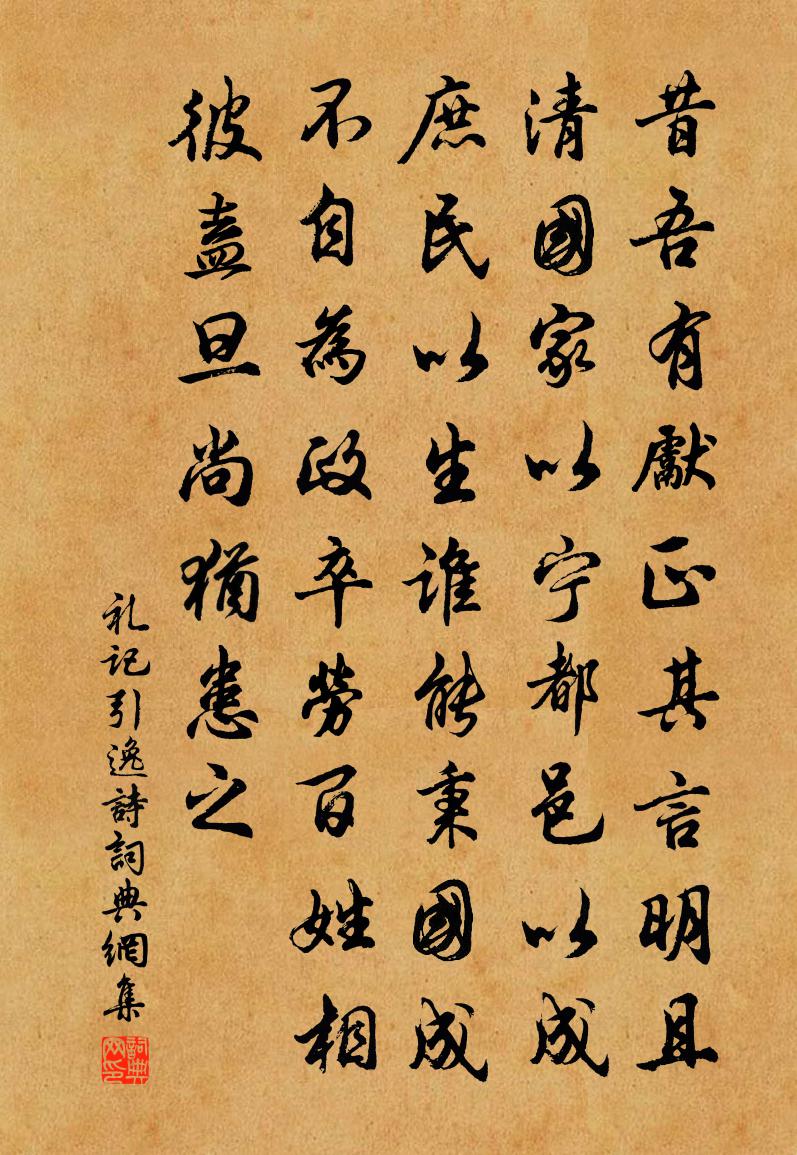 昔吾有獻正其言明且
清國家以宁都邑以成
庶民以生誰能秉國成
不自為政卒勞百姓相
彼盍旦尚猶患之
礼記引逸詩詞典網集
詞典网印